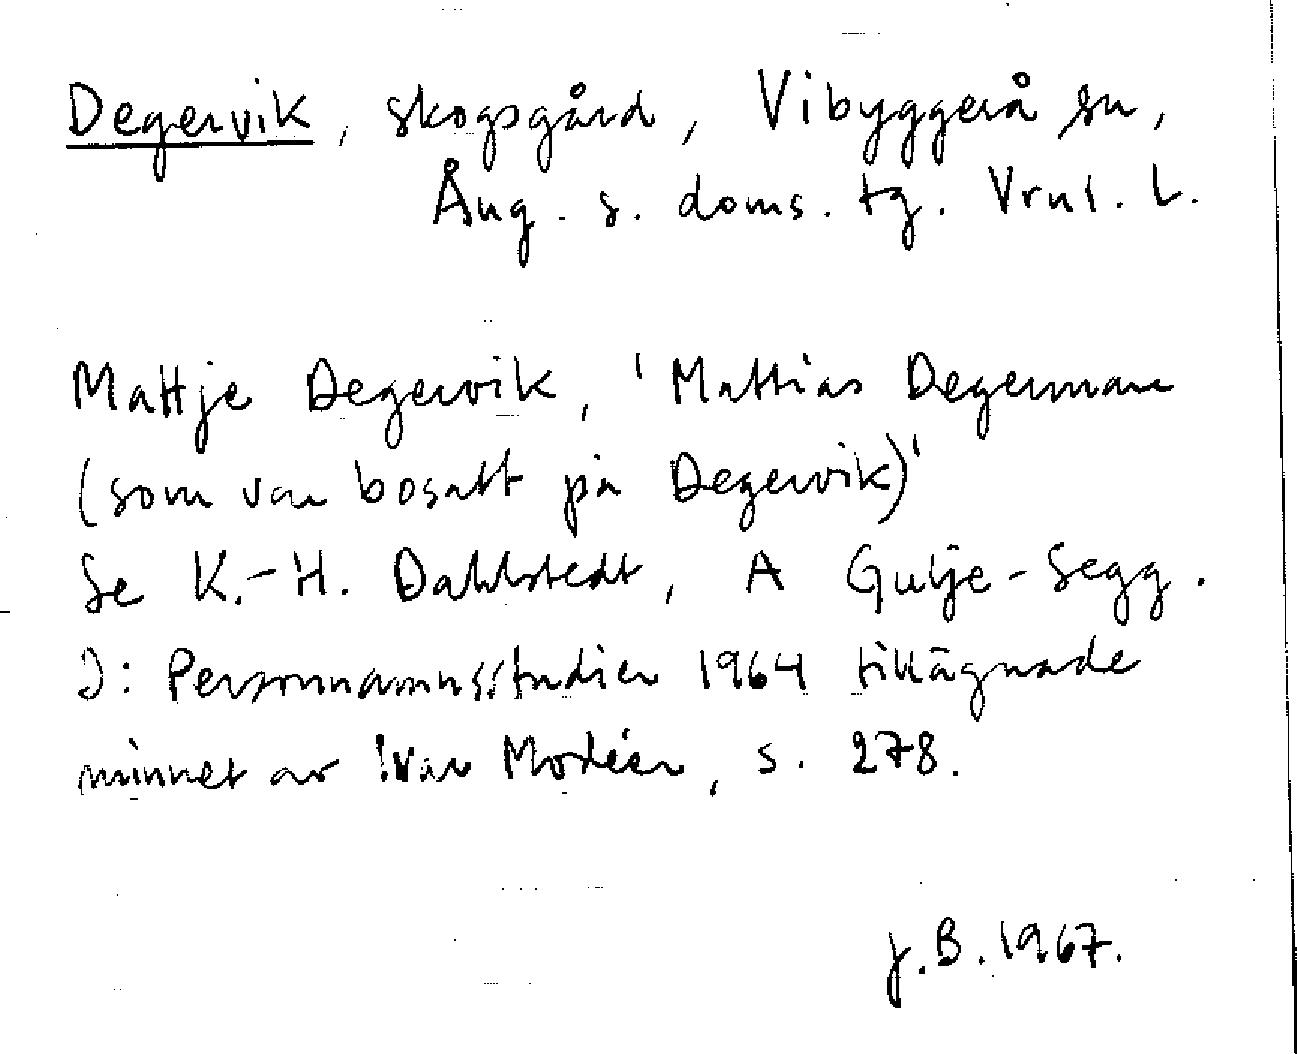 Degervik, skogsgård, Vibyggerå sn,
Ång. s. doms. tg. Vrnl. L.
Mattje Degervik, 'Mattias Degerman
(som var bosatt på Degervik)'
Se K.-H. Dahlstedt, A Gulje-Segg.
I: Personnamnsstudier 1964 tillägnade
minnet av Ivar Modéer, s. 278.
J.B. 1967.